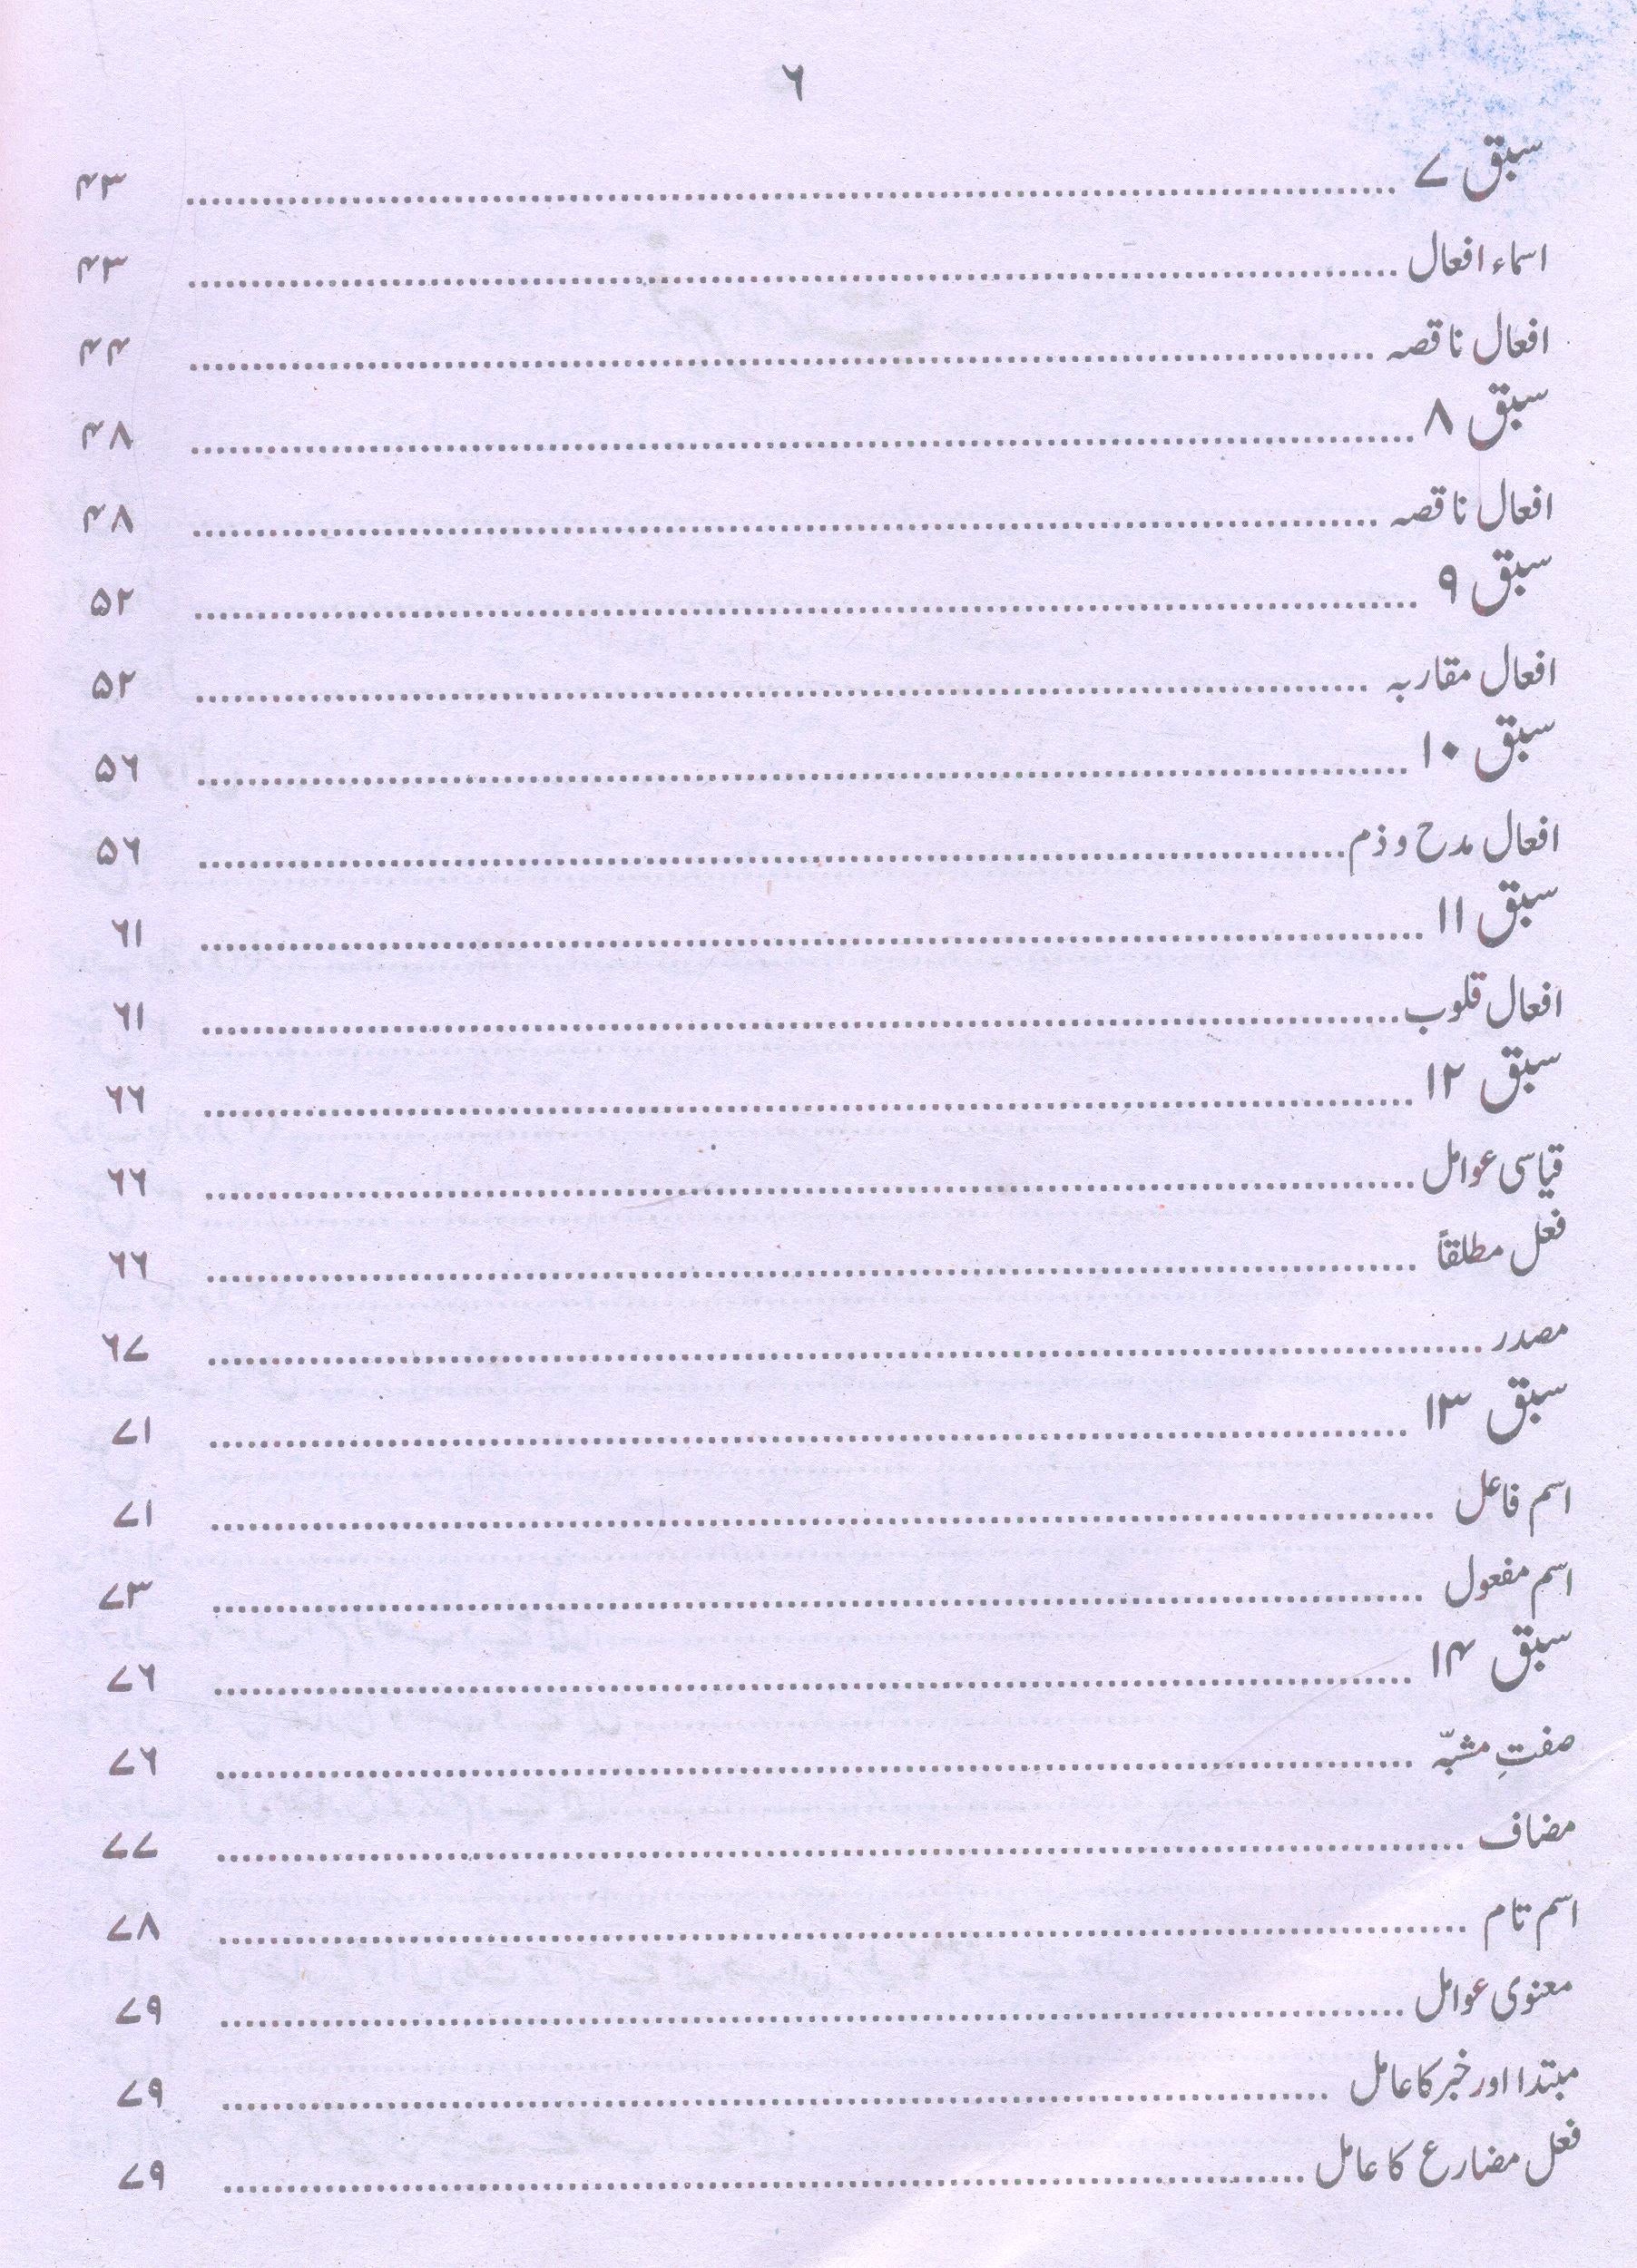 ۶
سبق ۷ ........ ۴۳
اسماء افعال ........ ۴۳
افعال ناقصہ ........ ۴۴
سبق ۸ ........ ۴۸
افعال ناقصہ ........ ۴۸
سبق ۹ ........ ۵۲
افعال مقاربہ ........ ۵۲
سبق ۱۰ ........ ۵۶
افعال مدح و ذم ........ ۵۶
سبق ۱۱ ........ ۶۱
افعال قلوب ........ ۶۱
سبق ۱۲ ........ ۶۶
قیاسی عوامل ........ ۶۶
فعل مطلقاً ........ ۶۶
مصدر ........ ۶۷
سبق ۱۳ ........ ۷۱
اسم فاعل ........ ۷۱
اسم مفعول ........ ۷۳
سبق ۱۴ ........ ۷۶
صفتِ مشبّہ ........ ۷۶
مضاف ........ ۷۷
اسم تام ........ ۷۸
معنوی عوامل ........ ۷۹
مبتدا اور خبر کا عامل ........ ۷۹
فعل مضارع کا عامل ........ ۷۹